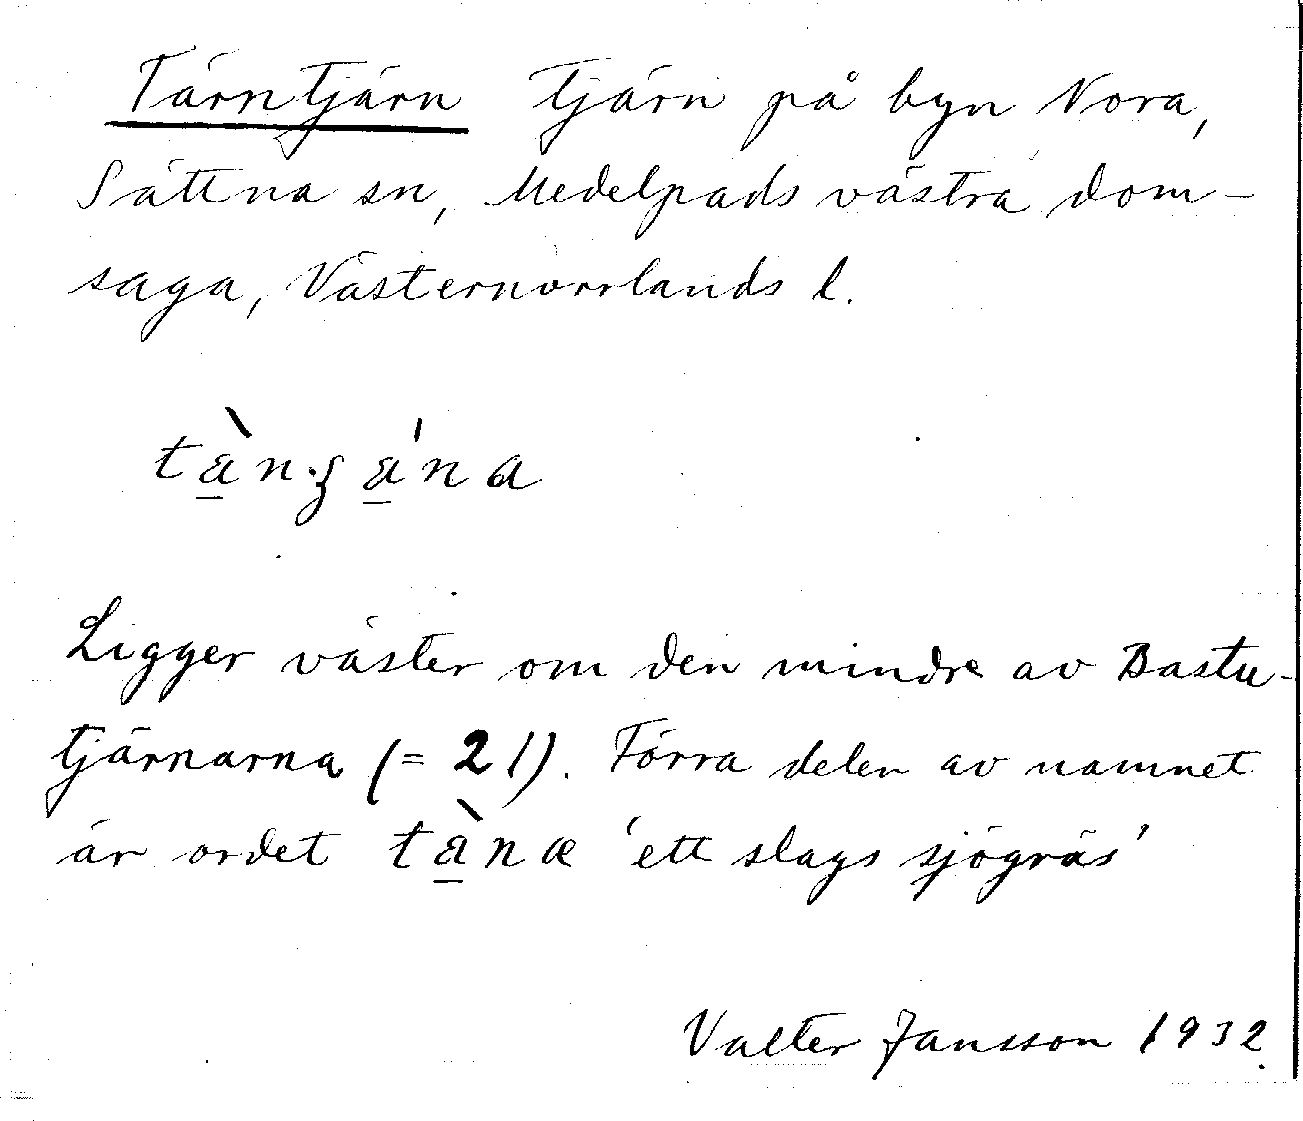 Tärntjärn tjärn på byn Nora,
Sättna sn, Medelpads västra dom-
saga, Västernorrlands l.
Ligger väster om den mindre av Bastu-
tjärnarna (= 21). Förra delen av namnet
är ordet tä̀næ 'ett slags sjögräs'
Valter Jansson 1932